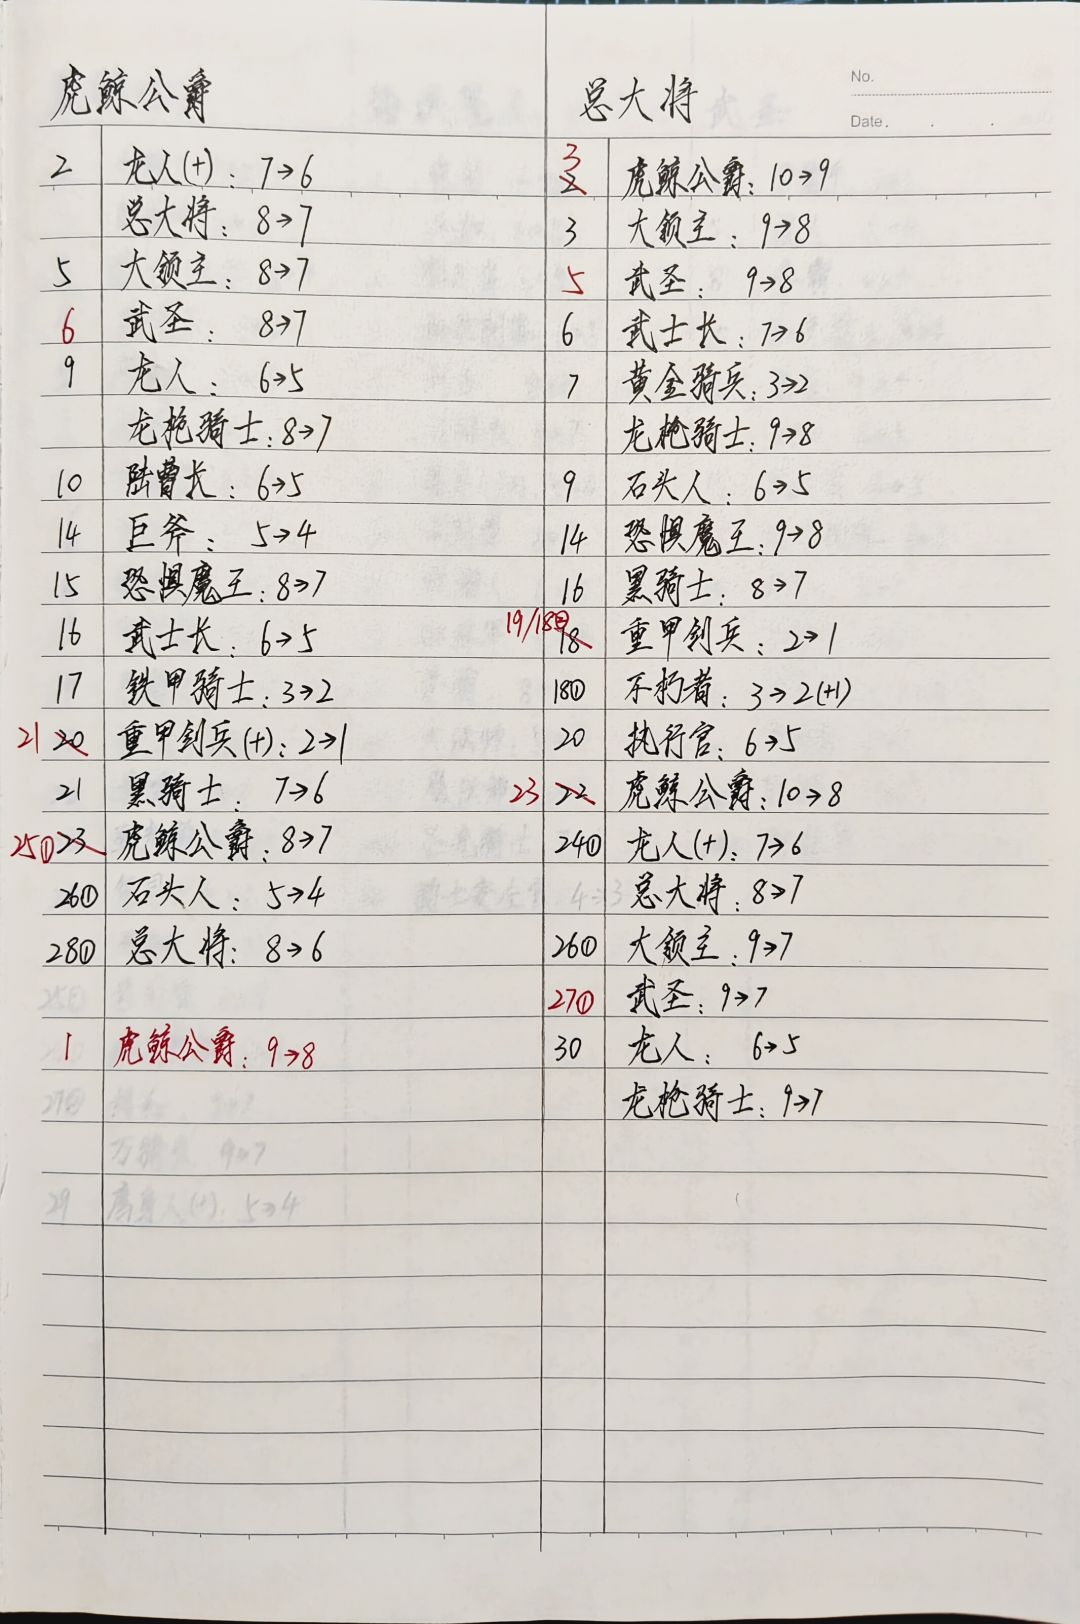 No.
Date. . .
虎鲸公爵
2 龙人(+): 7→6
总大将: 8→7
5 大领主: 8→7
6 武圣: 8→7
9 龙人: 6→5
龙枪骑士: 8→7
10 陆曹长: 6→5
14 巨斧: 5→4
15 恐惧魔王: 8→7
16 武士长: 6→5
17 铁甲骑士: 3→2
21 20 重甲剑兵(+): 2→1
21 黑骑士: 7→6
25① 23 虎鲸公爵: 8→7
26① 石头人: 5→4
28① 总大将: 8→6
1 虎鲸公爵: 9→8
总大将
3 2 虎鲸公爵: 10→9
3 大领主: 9→8
5 武圣: 9→8
6 武士长: 7→6
7 黄金骑兵: 3→2
龙枪骑士: 9→8
9 石头人: 6→5
14 恐惧魔王: 9→8
16 黑骑士: 8→7
19/18② 18 重甲剑兵: 2→1
18① 不朽者: 3→2(+1)
20 执行官: 6→5
23 22 虎鲸公爵: 10→8
24① 龙人(+): 7→6
总大将: 8→7
26① 大领主: 9→7
27① 武圣: 9→7
30 龙人: 6→5
龙枪骑士: 9→7